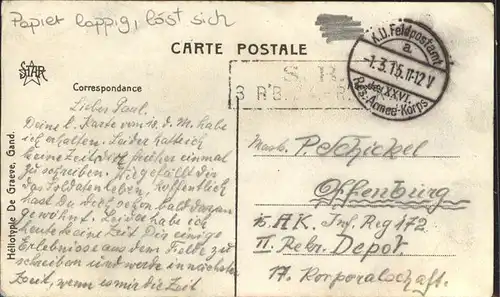 Papier lappig, löst sich
CARTE POSTALE
STAR
Correspondance
K.D. Feldpostamt
a
-1.3.15.11-12V
des XXVI.
Res.-Armee-Korps
S. B.
Lieber Paul.
Deine l. Karte vom 18. d. M. habe
ich erhalten. Leider hatte ich
keine Zeit dir früher einmal
zu schreiben. Wie gefällt dir
das Soldatenleben, hoffentlich
hast du dich schon bald daran
gewöhnt. Leider habe ich
heute keine Zeit Dir einige
Erlebnisse aus dem Felde zu
schreiben und werde in nächster
Zeit, wenn es mir die Zeit
Musk. P. Schickel
Offenburg
A.K. Inf. Reg 172
II. Rekr. Depot.
17. Korporalschaft.
Héliotypie De Graeve, Gand.